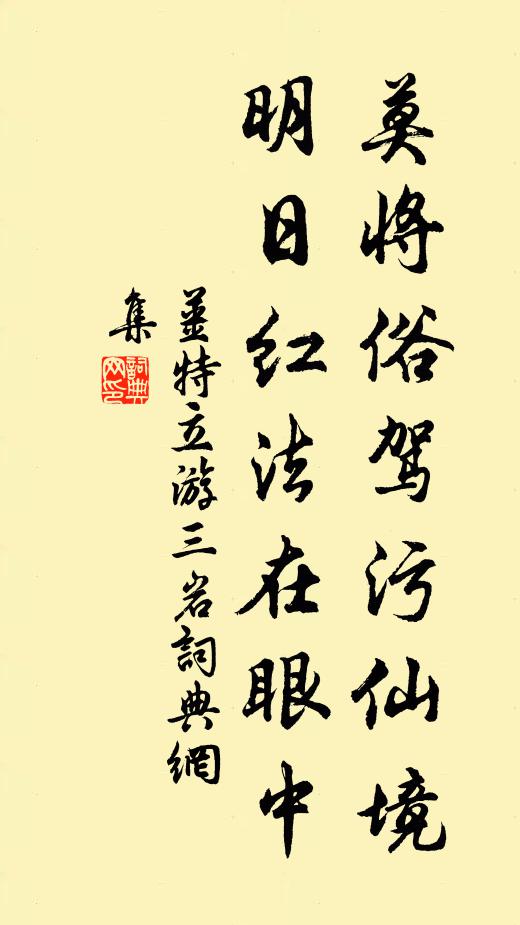 莫将俗驾污仙境
明日红法在眼中
姜特立游三岩詞典網
集
詞典
网印